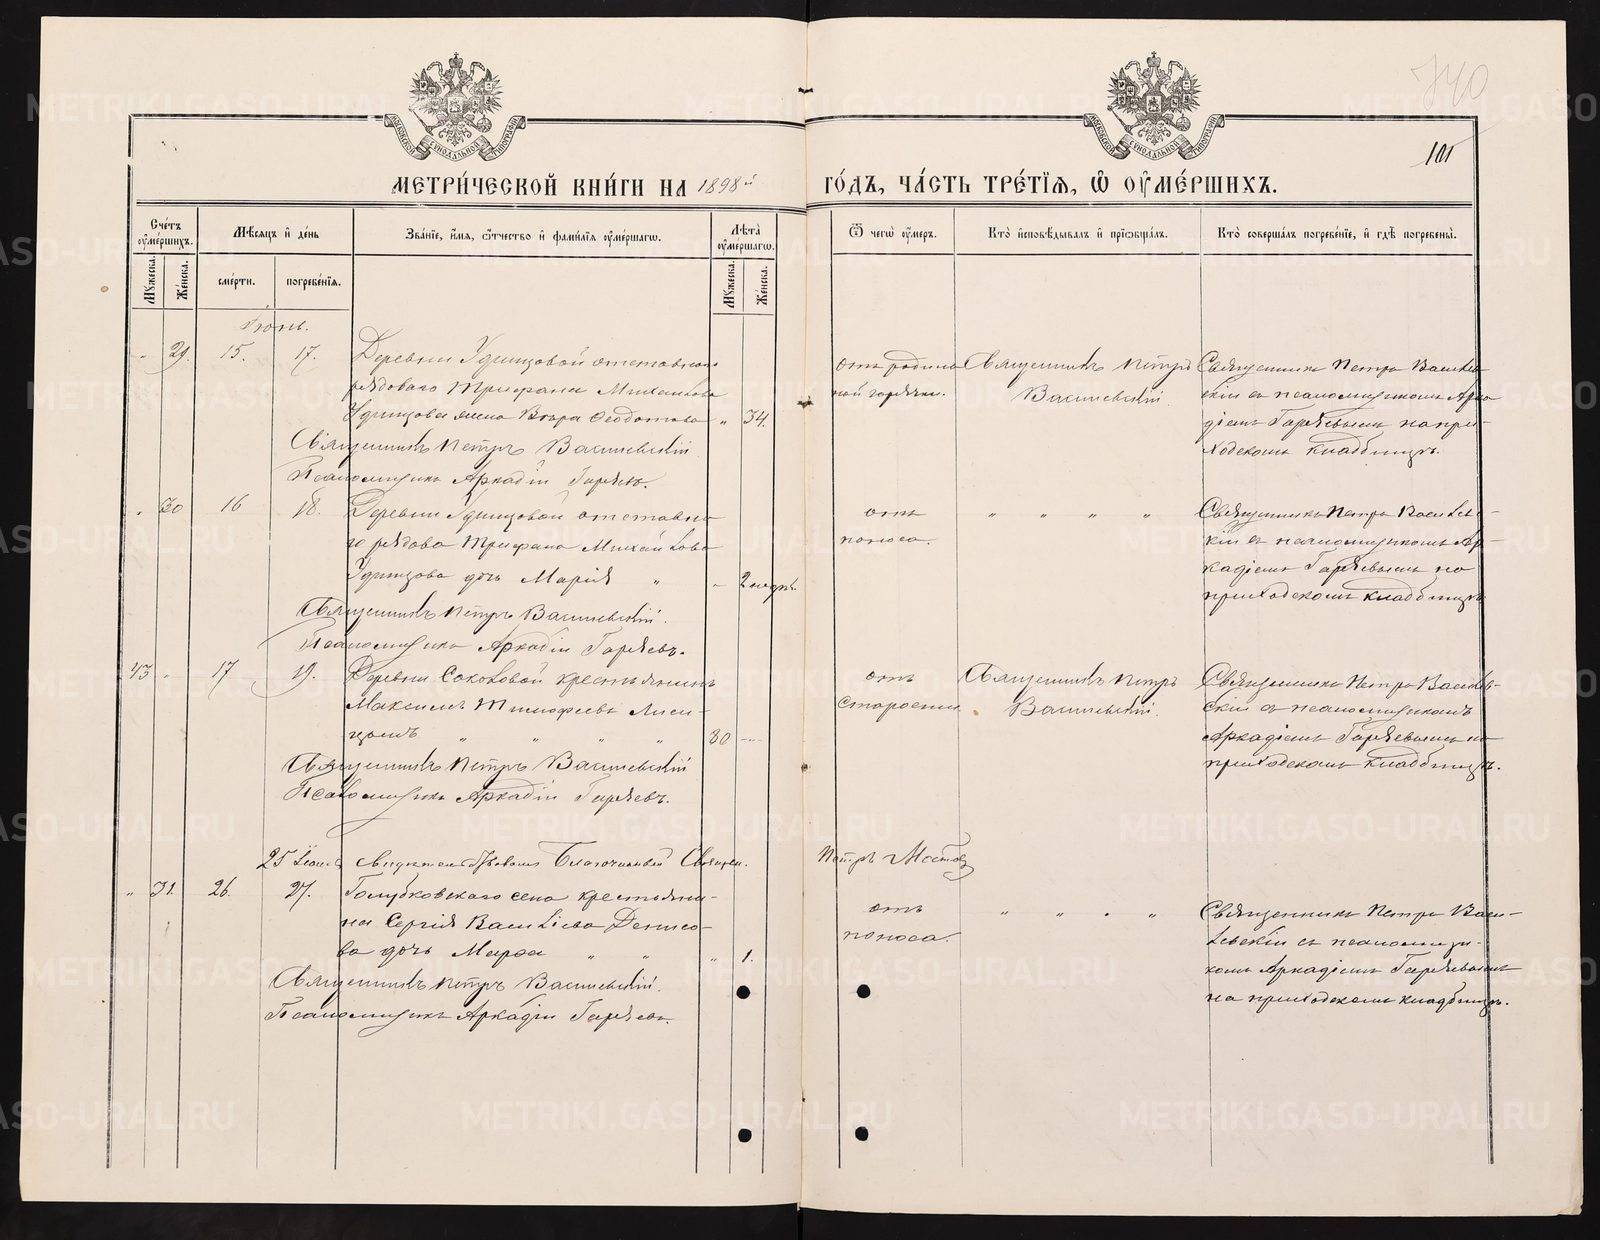 740
101
МЕТРИ́ЧЕСКОЙ КНИ́ГИ НА 1898й ГО́ДЪ, ЧА́СТЬ ТРЕ́ТІѦ, Ѡ҆ ОУ҆МЕ́РШИХЪ.
Сче́тъ оу҆ме́ршихъ.
Мѣ́сяцъ и҆ де́нь
Зва́нїе, и҆́мѧ, ѻ҆́тчество и҆ фами́лїѧ оу҆ме́ршагѡ.
Лѣта̀ оу҆ме́ршагѡ.
Ѿ чегѡ̀ оу҆́меръ.
Кто̀ и҆сповѣ́дывалъ и҆ прїѡбща́лъ.
Кто̀ соверша́лъ погребе́нїе, и҆ гдѣ̀ погребены̀.
Му́жеска.
Же́нска.
сме́рти.
погребе́нїѧ.
Му́жеска.
Же́нска.
Іюнь.
29. 15. 17. Деревни Удинцовой отставного
рядоваго Трифана Михайлова
Удинцова жена Вѣра Ѳеодотова " 34.
Священникъ Петръ Василевскій
Псаломщикъ Аркадій Гаряевъ.
отъ родиль
ной горячки.
Священникъ Петръ
Василевскій
Священникъ Петръ Василев
скій съ псаломщикомъ Арка
діемъ Гаряевымъ на при-
ходскомъ кладбищѣ.
30 16 18. Деревни Удинцовой отставно
го рядова Трифана Михайлова
Удинцова дочь Марія " - 2 недѣл.
Священникъ Петръ Василевскій.
Псаломщикъ Аркадій Гаряевъ.
отъ
поноса.
" " " "
Священникъ Петръ Василев-
скій съ псаломщикомъ Ар-
кадіемъ Гаряевымъ на
приходскомъ кладбищѣ
43 - 17 19. Деревни Соколовой крестьянинъ
Максимъ Тимофеевъ Лиси-
цынъ " " " " 80 -
Священникъ Петръ Василевскій
Псаломщикъ Аркадій Гаряевъ.
отъ
старости
Священникъ Петръ
Василевскій.
Священникъ Петръ Василев-
скій съ псаломщикомъ
Аркадіемъ Гаряевымъ на
приходскомъ кладбищѣ.
25 Іюля свидѣтельствовалъ Благочинный Священ. Петръ
" 31. 26. 27. Голубковскаго села крестьяни-
на Сергія Васильева Денисо-
ва дочь Марѳа " " " 1.
Священникъ Петръ Василевскій.
Псаломщикъ Аркадій Гаряевъ.
отъ
поноса.
" " " "
Священникъ Петръ Васи-
левскій съ псаломщи-
комъ Аркадіемъ Гаряевымъ
на приходскомъ кладбищѣ.